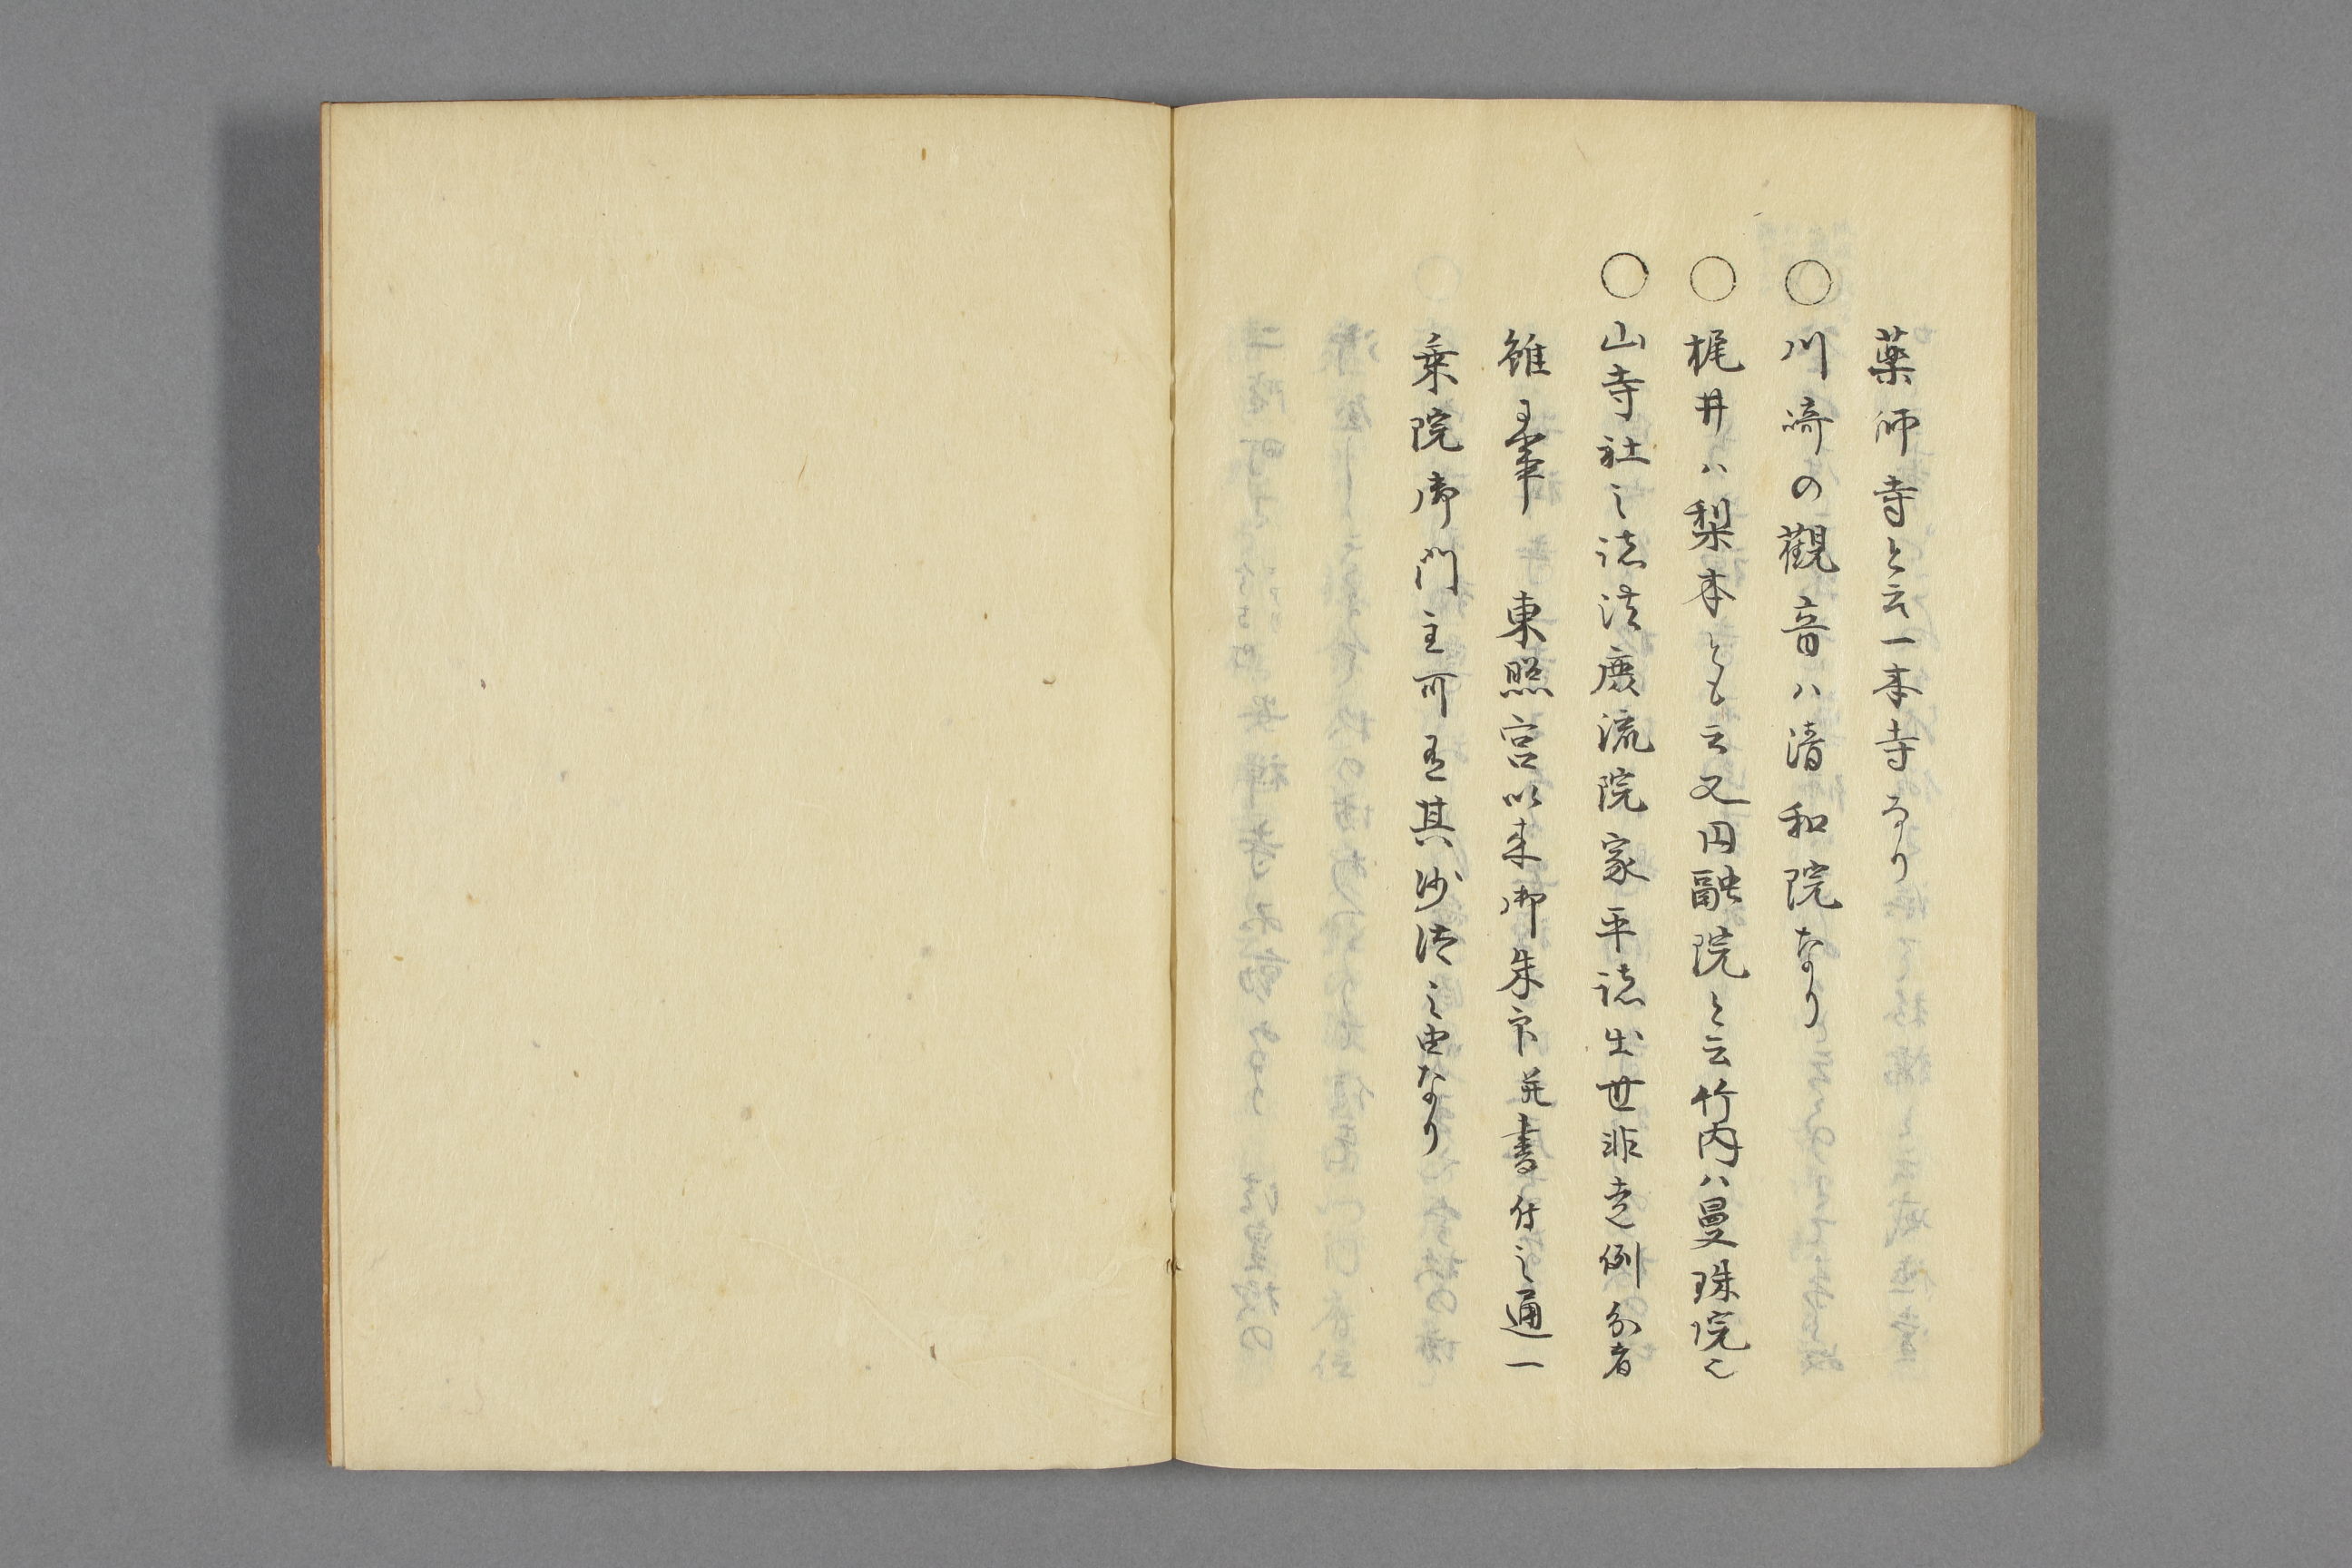 薬師寺と云一本寺なり
○川﨑の觀音ハ清和院なり
○梶井ハ梨本とも云又円融院と云竹内ハ曼珠院也
○山寺社之諸法度流院家平諸出世非先例分者
雖 東照宮以来御朱印并書付之通一
乗院御門主可有其沙法之由なり